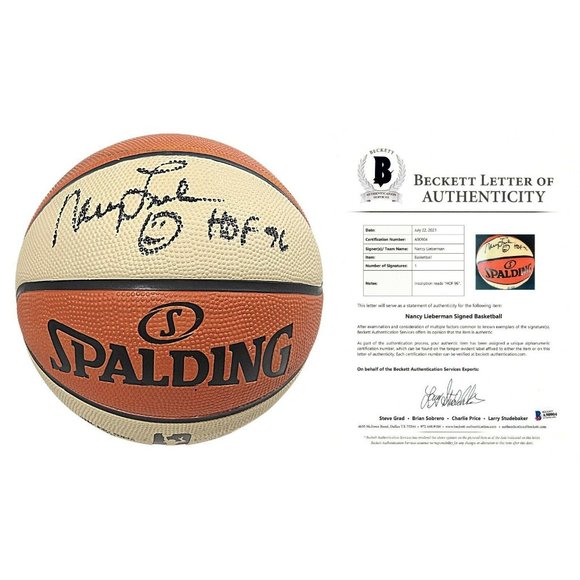 Nancy Lieberman
HOF 96
S
SPALDING
BECKETT
B
AUTHENTICATION
SERVICES
BECKETT LETTER OF
AUTHENTICITY
Date: July 22, 2021
Certification Number:
Signer(s)/ Team Name: Nancy Lieberman
Item: Basketball
Number of Signatures: 1
Notes: Inscription reads "HOF 96".
This letter will serve as a statement of authenticity for the following item:
Nancy Lieberman Signed Basketball
After examination and consideration of multiple factors common to known exemplars of the signature(s),
Beckett Authentication Services offers its opinion that the item is authentic.
As part of the authentication process, your authentic item has been assigned a unique alphanumeric
certification number, which can be found on the tamper evident label affixed to either the item or on this
letter of authenticity. Each certification number can be verified at beckett-authentication.com.
On behalf of the Beckett Authentication Services Experts:
Steve Grad - Brian Sobrero - Charlie Price - Larry Studebaker